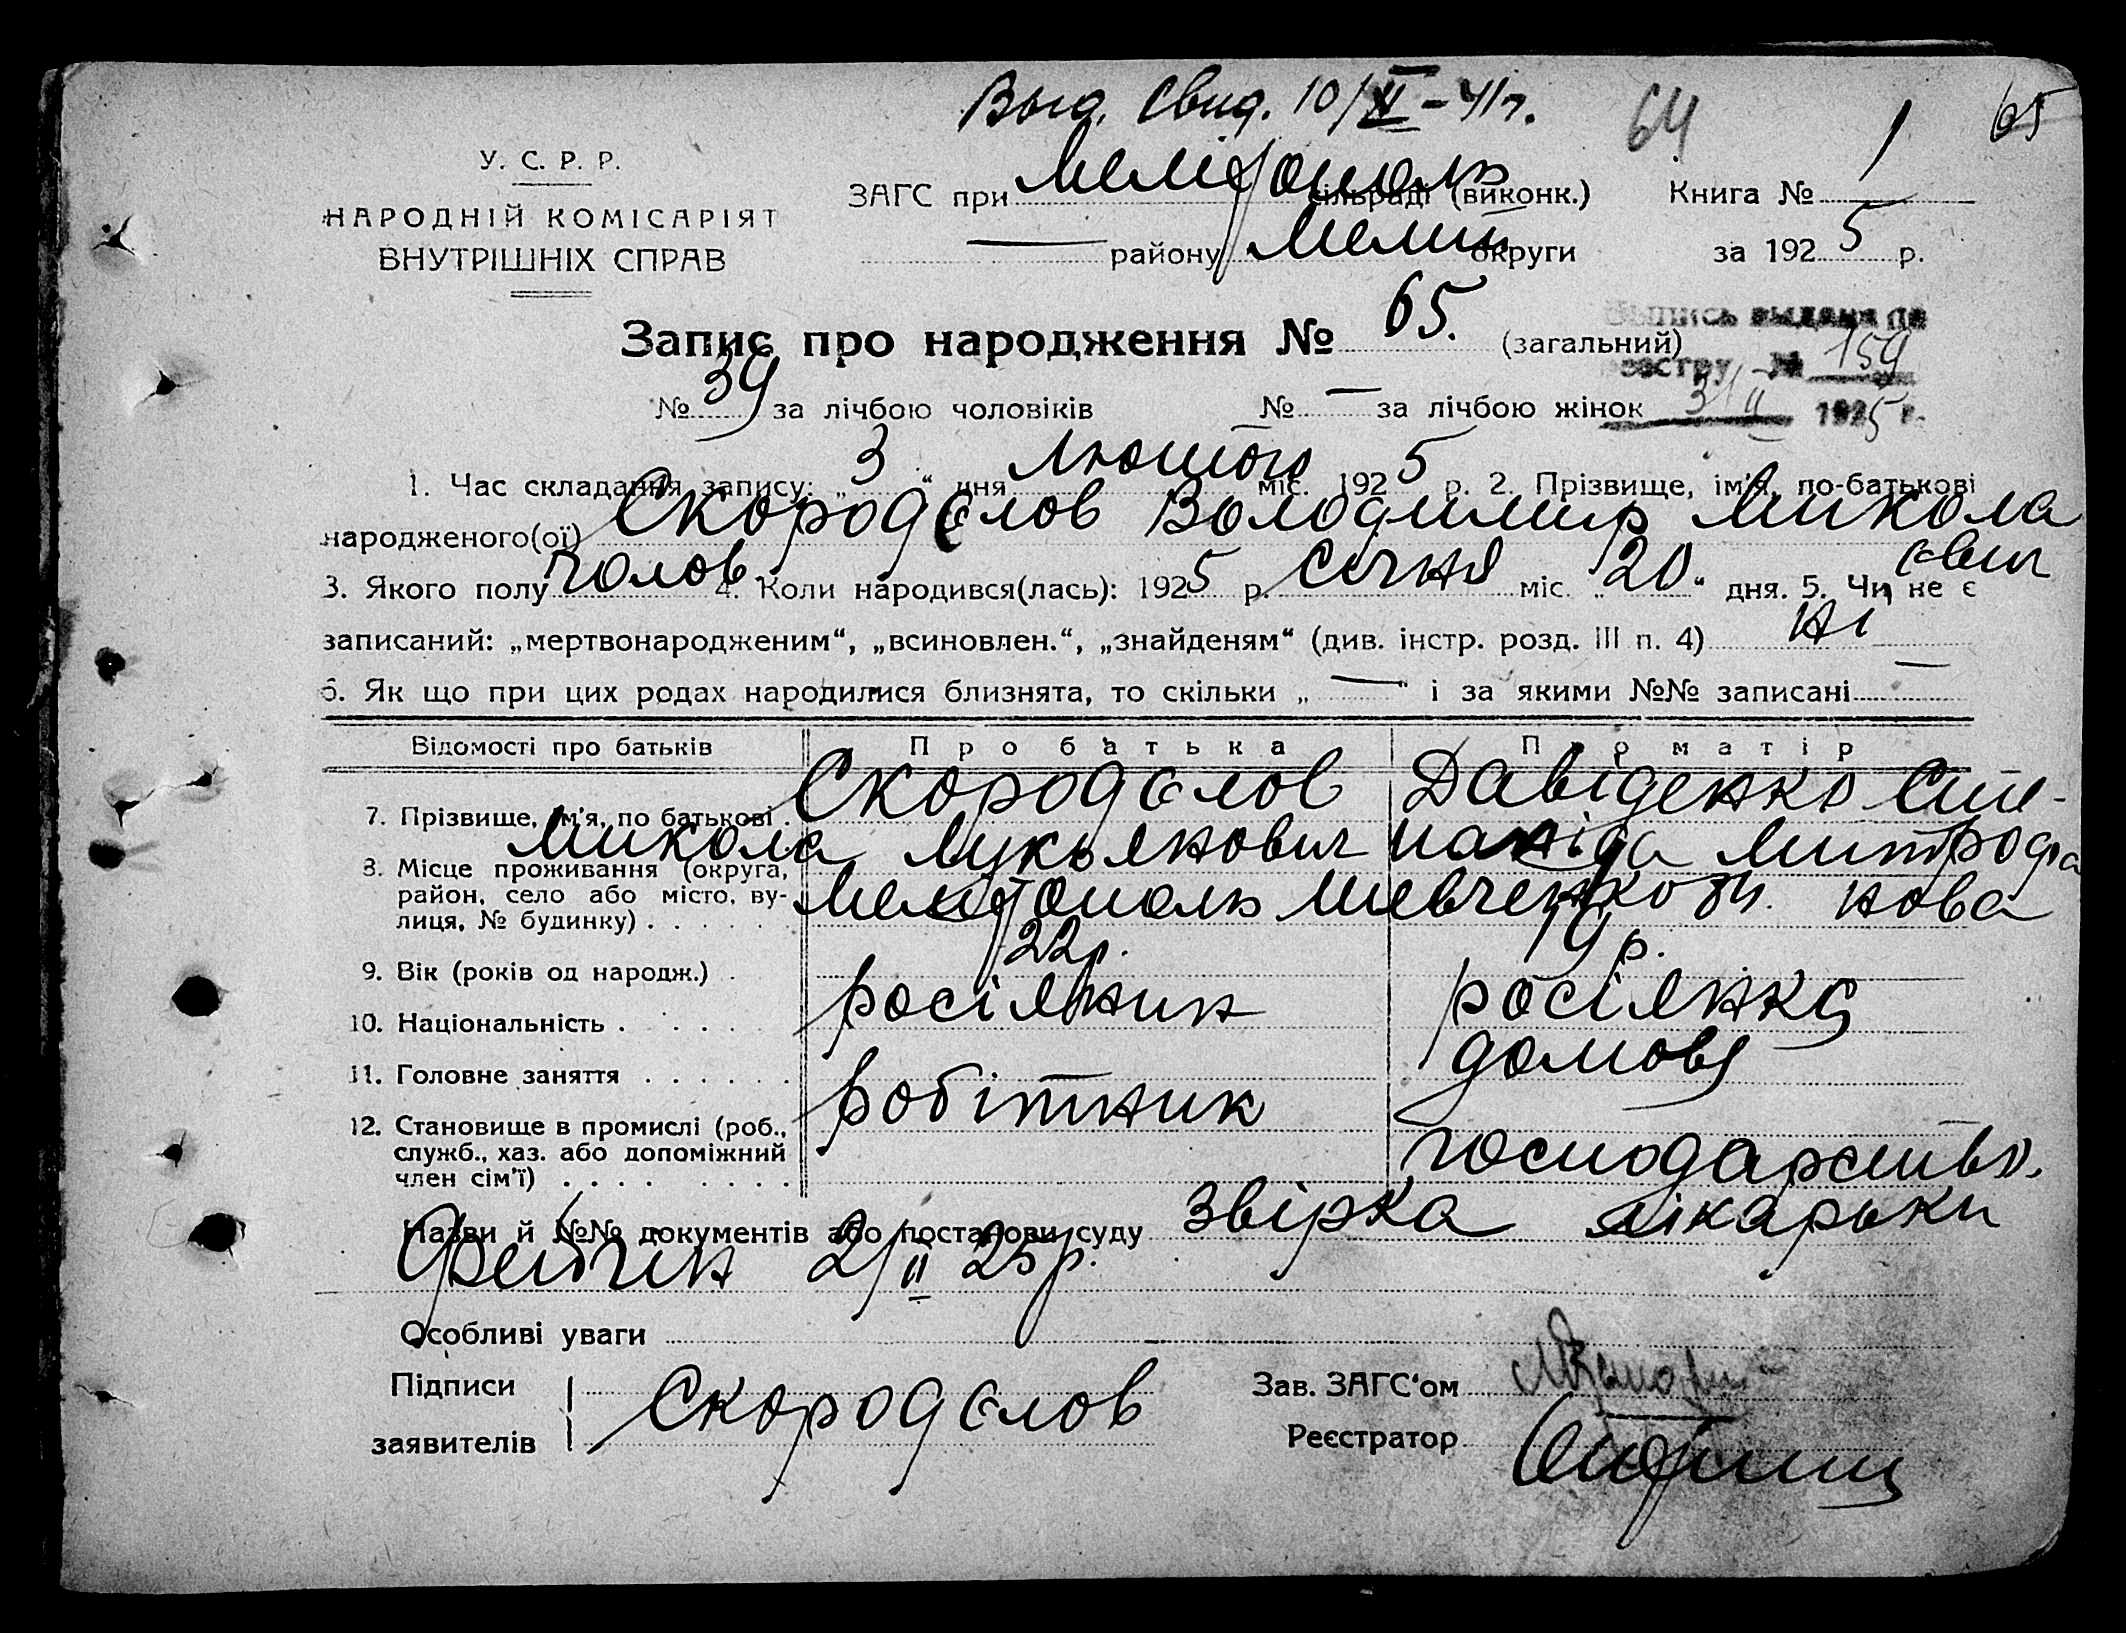 Выд. Свид. 10/II-41г.
64
65
У. С. Р. Р.
НАРОДНІЙ КОМІСАРІЯТ
ВНУТРІШНІХ СПРАВ
ЗАГС при Мелітополь сільраді (виконк.) Книга № 1
— району Мелит округи за 1925 р.
Запис про народження № 65. (загальний)
Выпись выдана по
реестру № 159
3/II 1925 г.
№ 39 за лічбою чоловіків № — за лічбою жінок
1. Час складання запису: „3“ дня Лютого міс. 1925 р. 2. Прізвище, ім'я, по-батькові
народженого(ої) Скородєлов Володимир Микола
євич
3. Якого полу чолов. 4. Коли народився(лась): 1925 р. Січня міс. „20“ дня. 5. Чи не є
записаний: „мертвонародженим“, „всиновлен.“, „знайденям“ (див. інстр. розд. III п. 4) Ні
6. Як що при цих родах народилися близнята, то скільки „—“ і за якими №№ записані —
Відомості про батьків Про батька Про матір
7. Прізвище, ім'я, по батькові . Скородєлов Давіденко Сте-
Микола Лукьянович паніда Митрофа
8. Місце проживання (округа,
район, село або місто, ву-
лиця, № будинку) . . . . . Мелітополь Шевченко нова
9. Вік (років од народж.) . 22р. 19 р.
10. Національність . . . . . росіянин росіянка
11. Головне заняття . . . . . . робітник домовя
12. Становище в промислі (роб.,
служб., хаз. або допоміжний
член сім'ї) . . . . . . . . господарство.
Назви й №№ документів або постанови суду Звірка лікарьки
2/II 25р.
Особливі уваги
Підписи
заявителів
Скородєлов
Зав. ЗАГС'ом
Реєстратор